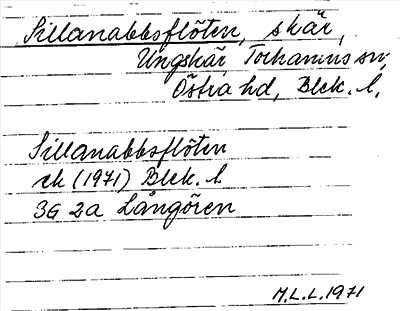 Sillanabbsflöten, skär,
Ungskär, Torhamns sn,
Östra hd, Blek. l,
Sillanabbsflöten
ek (1971) Blek. l
3G 2a Långören
M.L.L. 1971